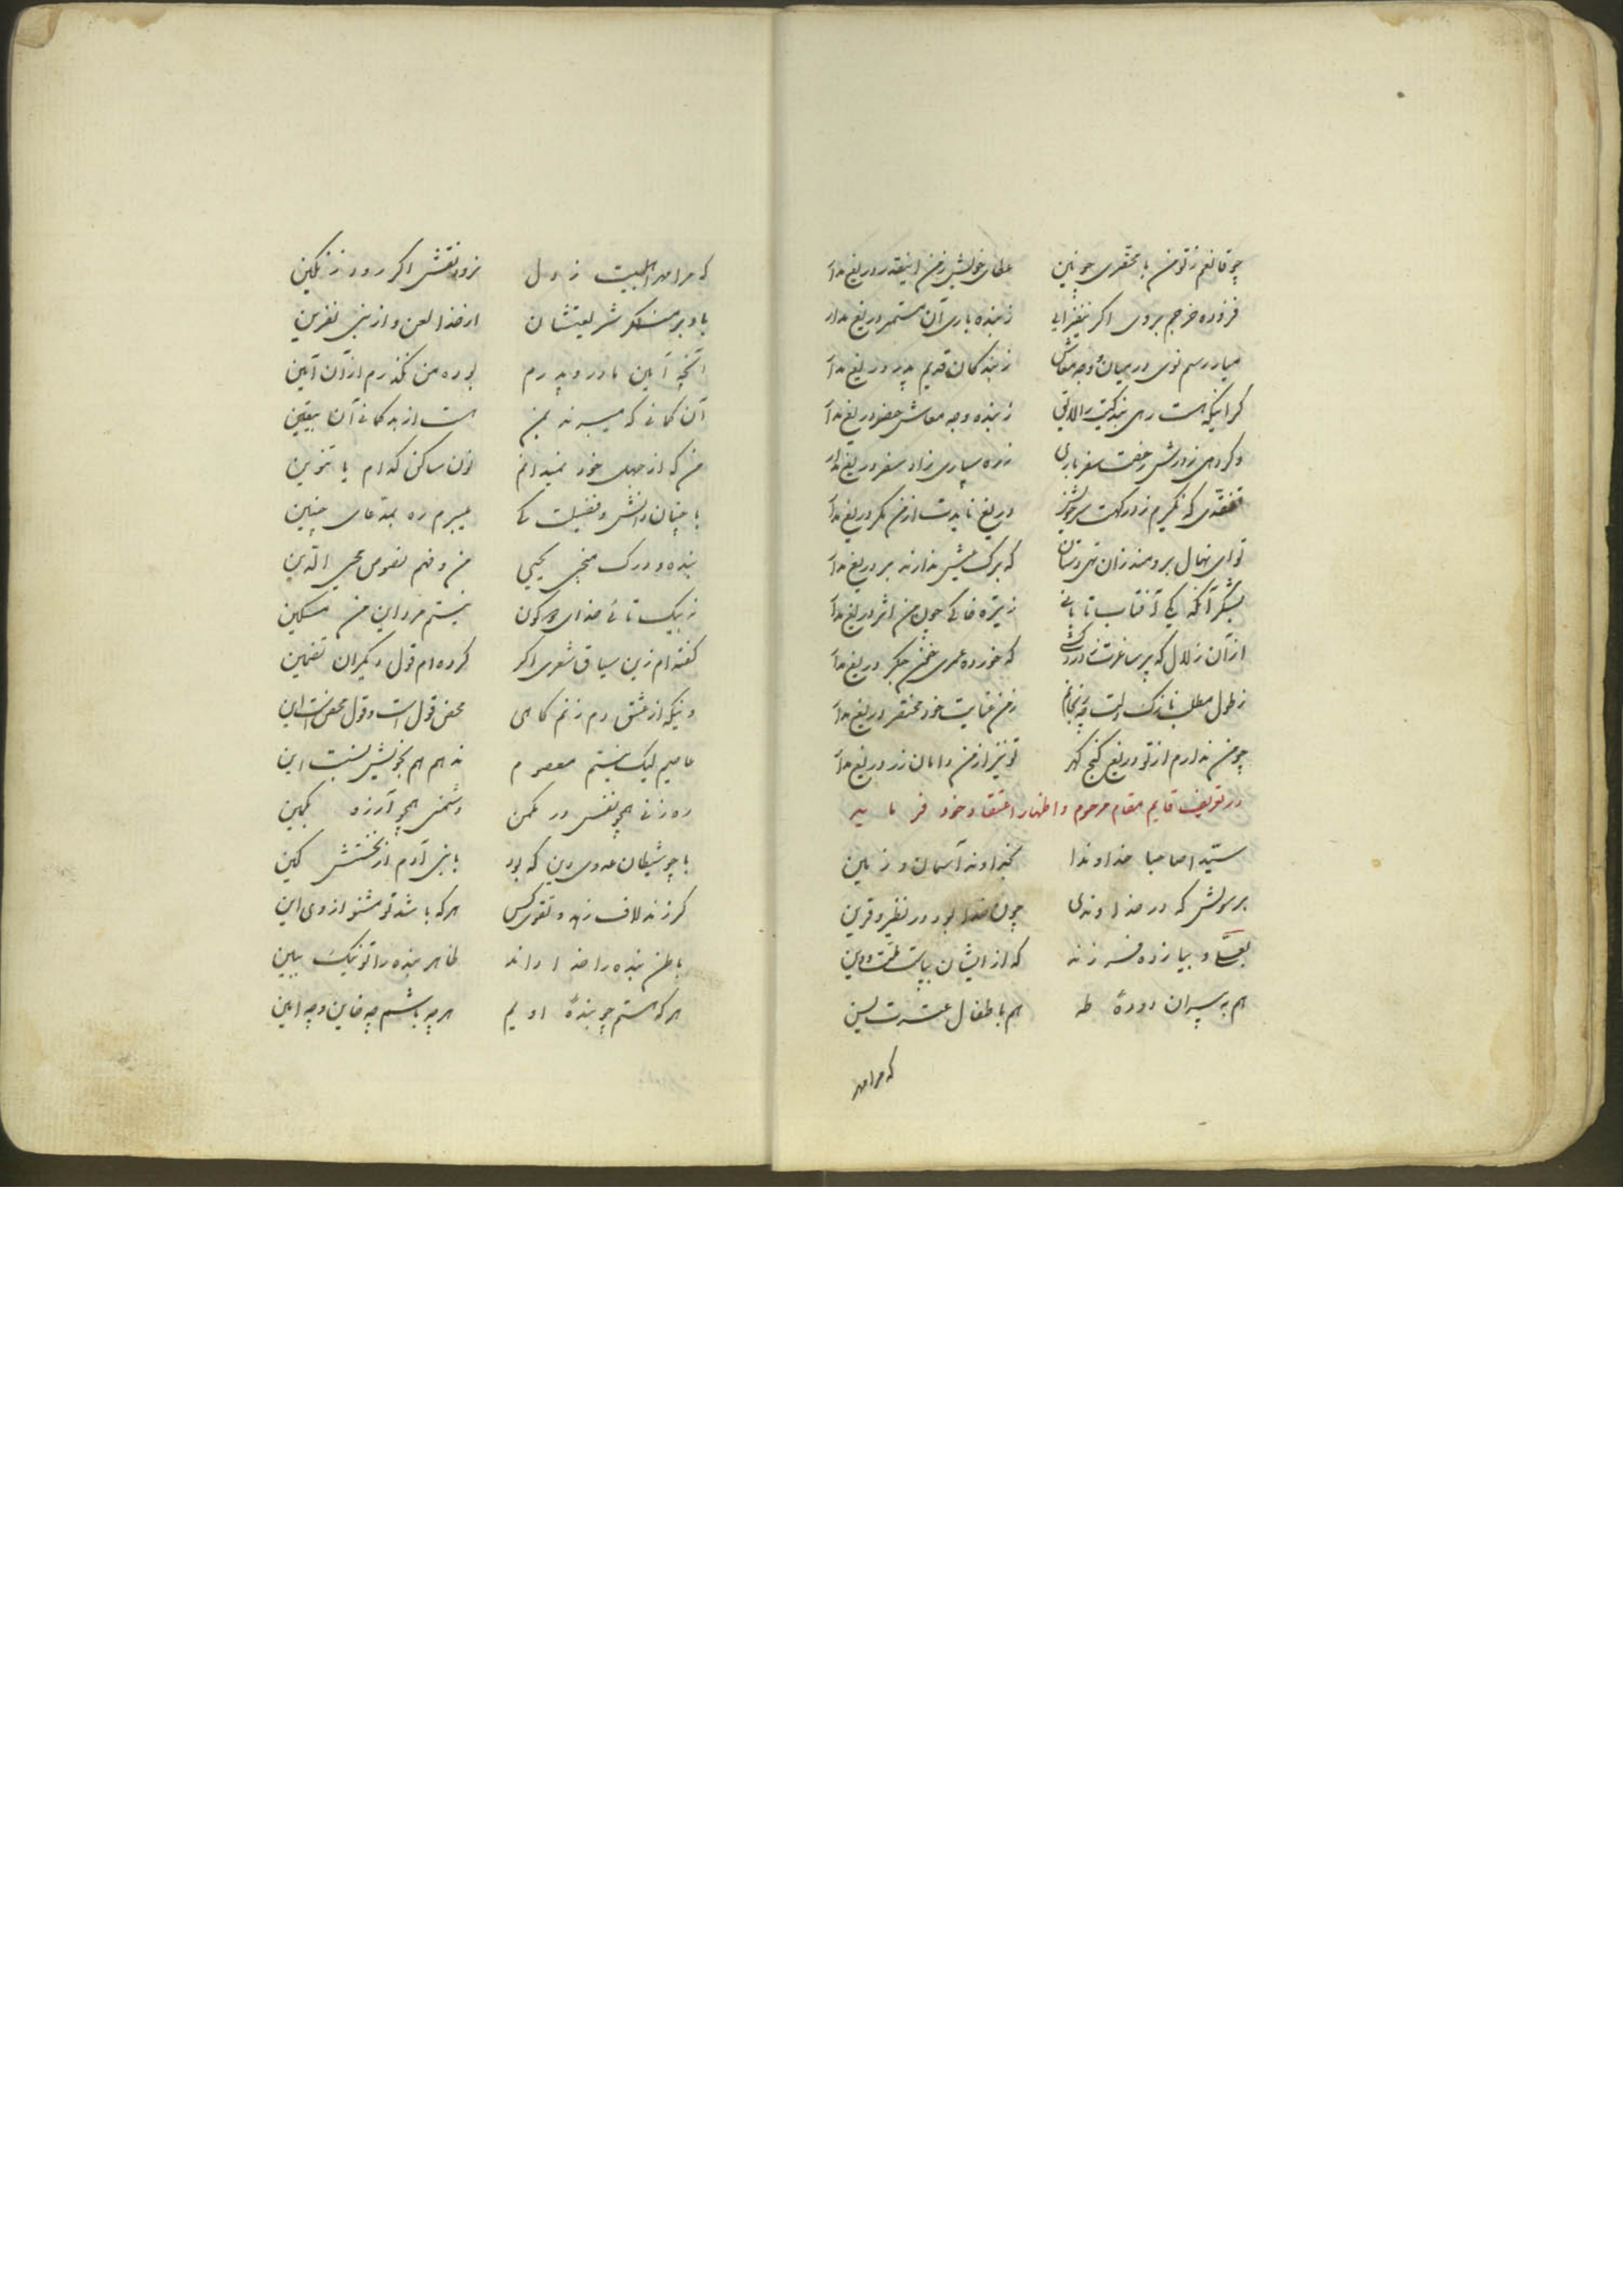 چو قانعم ز تو من با محقری چونین عطای خویش ز من اینقدر دریغ مدار
فزوده خرجم بروی اگر نیفزایی ز بنده باری آن مستمر دریغ مدار
میار رسم نوی در میان و وجه معاش ز بندگان قدیم ای پدر دریغ مدار
گر اینکه هست رهی بندگیت را لایق ز بنده وجه معاش حضر دریغ مدار
وگر دهی ز درش رخصت سفر باری ز ره سپاری زاد سفر دریغ مدار
تفقدی که نگیرم ز درگهت سر خویش دریغ نایدت از من مگر دریغ مدار
تو ای نهال برومند زان تهی دستان که برگ عیش ندارند بر دریغ مدار
بشکر آنکه یکی آفتاب تابانی ز تیره خاکی چون من اثر دریغ مدار
از آن زلال که پر ساغرت که خورده عمری خون جگر دریغ مدار
ز طول مطلب نازک دلت ز من عنایت خود مختصر دریغ مدار
چو من ندارم از تو دریغ گنج گهر تو نیز از من دامان زر دریغ مدار
در تعریف قایم مقام مرحوم و اظهار اعتقاد خود فرماید
سیدا صاحبا خداوندا بخداوند آسمان و زمین
برسولش که در خداوندی چون خدا بود در نظیر و قرین
بعلی و بیازده فرزند که از ایشان بپاست ملت و دین
هم به پیران دودهٔ طه هم باطفال عترت یس
که مرا مهر
که مرا مهر اهلبیت ز دل نرود نقش اگر رود ز نگین
باد بر منکر شریعتشان از خدا لعن و از نبی نفرین
آنچه آیین مادر و پدرم بوده من نگذرم از آن آیین
آن گمانی که میبرند بمن هست از بد گمانی آن بیقین
من که از جهل خود نمیدانم نون ساکن کدام یا تنوین
با چنان دانش و فضیلت کی میبرم ره بمدعای چنین
بنده و درک منجی یحیی من و فهم نصوص محیی الدین
نیستم مرد این من مسکین
گفته ام زین سیاق شعری اگر کرده ام قول دیگران تضمین
وینکه از عشق دم زنم گاهی محض قول است و قول محض است این
عامیم لیک نیستم معصوم ندهم هم بخویش نسبت این
رهزنی همچو نفس در مکمن دشمنی همچو آرزو بکمین
با چو شیطان عدوی دین که بود با بنی آدم از نخستش کین
گر زند لاف زهد و تقوی کس هر که باشد تو مشنو از وی این
باطن بنده را خدا داند ظاهر بنده را تو نیک ببین
هر که هستم چو بندهٔ اویم هر چه باشم چه خاین و چه امین